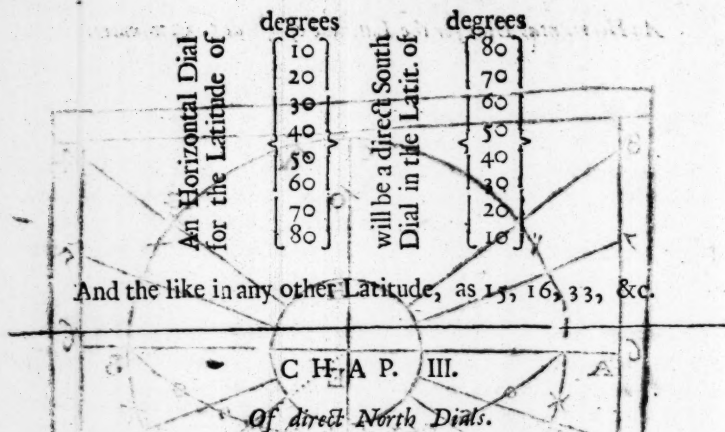 degrees degrees
An Horizontal Dial
for the Latitude of
10
20
30
40
50
60
70
80
will be a direct South
Dial in the Latit. of
80
70
60
50
40
30
20
10
And the like in any other Latitude, as 15, 16, 33, &c.
CHAP. III.
Of direct North Dials.